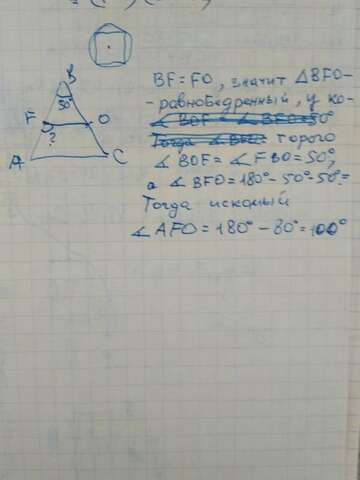 B
50°
F
O
?
A
C
BF=FO, значит ∠BFO-
-равнобедренный, у ко-
∠BOF = ∠BFO=50°
Тогда ∠ торого
∠BOF = ∠FBO=50°,
а ∠BFO=180°-50°-50°=
Тогда искомый
∠AFO=180°-80°=100°